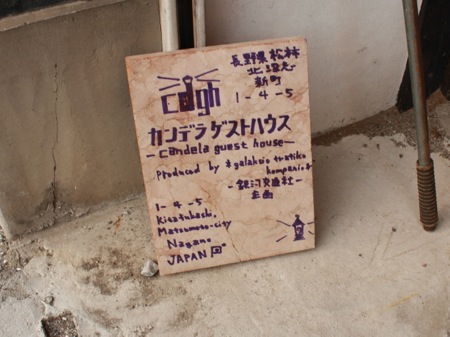 長野県松本
北深志
新町
1-4-5
cdgh
カンデラ ゲストハウス
-candela guest house-
Produced by *galaksio trafiko kompanio*
-銀河交通社-
企画
1-4-5
Kitafukashi,
Matsumoto-city
Nagano
JAPAN